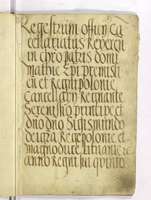 Regestrum officij Can
cellariatus Reveren
in chro patris domi
mathie Epi premisli
en et Regni polonie
Cancellarij Regnante
Serenissimo principe et
dno dno Sigismundo
dei gra Rege polonie et
magno duce lithuanie
anno Regni sui quinto